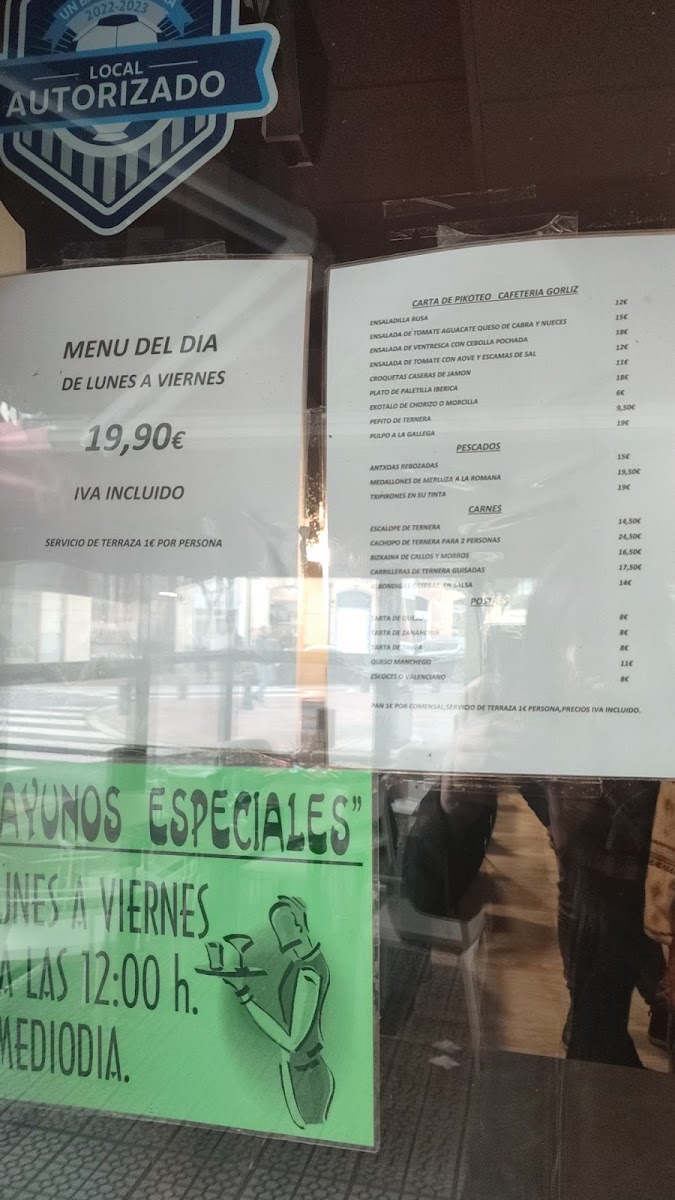 2022-2023
LOCAL
AUTORIZADO
MENU DEL DIA
DE LUNES A VIERNES
19,90€
IVA INCLUIDO
SERVICIO DE TERRAZA 1€ POR PERSONA
CARTA DE PIKOTEO CAFETERIA GORLIZ
ENSALADILLA RUSA 12€
ENSALADA DE TOMATE AGUACATE QUESO DE CABRA Y NUECES 15€
ENSALADA DE VENTRESCA CON CEBOLLA POCHADA 18€
ENSALADA DE TOMATE CON AOVE Y ESCAMAS DE SAL 12€
CROQUETAS CASERAS DE JAMON 11€
PLATO DE PALETILLA IBERICA 18€
EKOTALO DE CHORIZO O MORCILLA 6€
PEPITO DE TERNERA 9,50€
PULPO A LA GALLEGA 19€
PESCADOS
ANTXOAS REBOZADAS 15€
MEDALLONES DE MERLUZA A LA ROMANA 19,50€
TXIPIRONES EN SU TINTA 19€
CARNES
ESCALOPE DE TERNERA 14,50€
CACHOPO DE TERNERA PARA 2 PERSONAS 24,50€
BIZKAINA DE CALLOS Y MORROS 16,50€
CARRILLERAS DE TERNERA GUISADAS 17,50€
ALBONDIGAS CASERAS EN SALSA 14€
POSTRES
TARTA DE QUESO 8€
TARTA DE ZANAHORIA 8€
TARTA DE 8€
QUESO MANCHEGO 11€
ESCOCES O VALENCIANO 8€
PAN 1€ POR COMENSAL,SERVICIO DE TERRAZA 1€ PERSONA,PRECIOS IVA INCLUIDO.
AYUNOS ESPECIALES"
UNES A VIERNES
A LAS 12:00 h.
MEDIODIA.